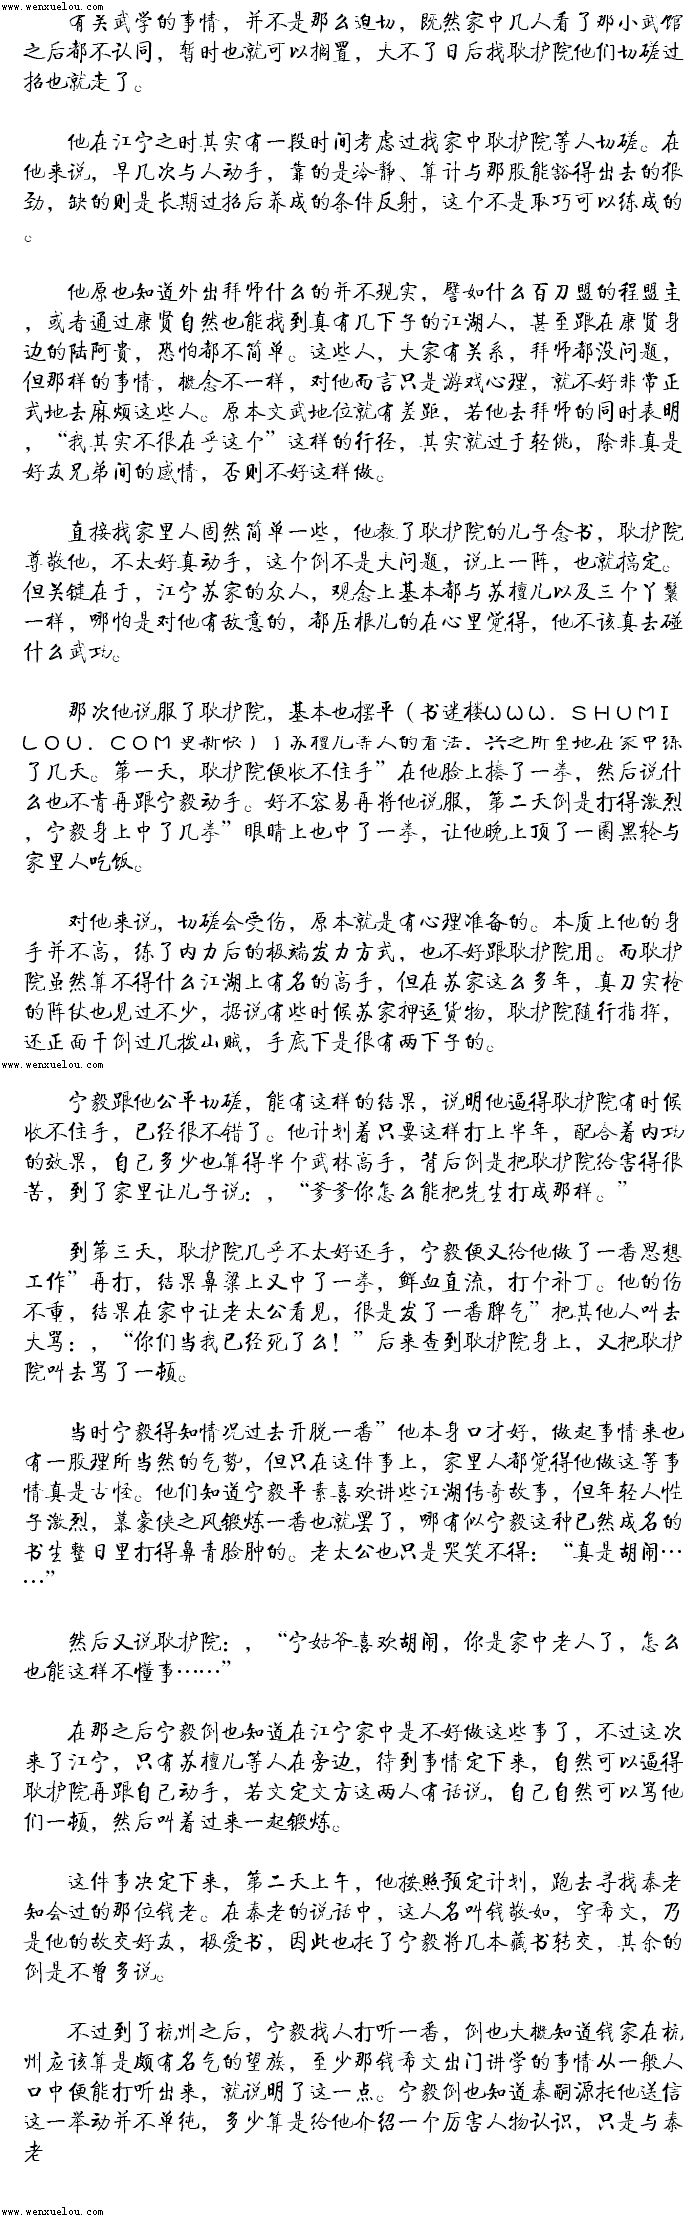 www.wenxuelou.com
有关武学的事情，并不是那么迫切，既然家中几人看了那小武馆
之后都不认同，暂时也就可以搁置，大不了日后找耿护院他们切磋过
招也就走了。
他在江宁之时其实有一段时间考虑过找家中耿护院等人切磋。在
他来说，早几次与人动手，靠的是冷静、算计与那股能豁得出去的狠
劲，缺的则是长期过招后养成的条件反射，这个不是取巧可以练成的
。
他原也知道外出拜师什么的并不现实，譬如什么百刀盟的程盟主
，或者通过康贤自然也能找到真有几下子的江湖人，甚至跟在康贤身
边的陆阿贵，恐怕都不简单。这些人，大家有关系，拜师都没问题，
但那样的事情，概念不一样，对他而言只是游戏心理，就不好非常正
式地去麻烦这些人。原本文武地位就有差距，若他去拜师的同时表明
，“我其实不很在乎这个”这样的行径，其实就过于轻佻，除非真是
好友兄弟间的感情，否则不好这样做。
直接找家里人固然简单一些，他教了耿护院的儿子念书，耿护院
尊敬他，不太好真动手，这个倒不是大问题，说上一阵，也就搞定。
但关键在于，江宁苏家的众人，观念上基本都与苏檀儿以及三个丫鬟
一样，哪怕是对他有敌意的，都压根儿的在心里觉得，他不该真去碰
什么武功。
那次他说服了耿护院，基本也摆平（书迷楼WWW．SHUMI
LOU．COM更新快））苏檀儿等人的看法，兴之所至地在家中练
了几天。第一天，耿护院便收不住手”在他脸上揍了一拳，然后说什
么也不肯再跟宁毅动手。好不容易再将他说服，第二天倒是打得激烈
，宁毅身上中了几拳”眼睛上也中了一拳，让他晚上顶了一圈黑轮与
家里人吃饭。
对他来说，切磋会受伤，原本就是有心理准备的。本质上他的身
手并不高，练了内力后的极端发力方式，也不好跟耿护院用。而耿护
院虽然算不得什么江湖上有名的高手，但在苏家这么多年，真刀实枪
的阵仗也见过不少，据说有些时候苏家押运货物，耿护院随行指挥，
还正面干倒过几拨山贼，手底下是很有两下子的。
www.wenxuelou.com
宁毅跟他公平切磋，能有这样的结果，说明他逼得耿护院有时候
收不住手，已经很不错了。他计划着只要这样打上半年，配合着内功
的效果，自己多少也算得半个武林高手，背后倒是把耿护院给害得很
苦，到了家里让儿子说：，“爹爹你怎么能把先生打成那样。”
到第三天，耿护院几乎不太好还手，宁毅便又给他做了一番思想
工作”再打，结果鼻梁上又中了一拳，鲜血直流，打个补丁。他的伤
不重，结果在家中让老太公看见，很是发了一番脾气”把其他人叫去
大骂：，“你们当我已经死了么！”后来查到耿护院身上，又把耿护
院叫去骂了一顿。
当时宁毅得知情况过去开脱一番”他本身口才好，做起事情来也
有一股理所当然的气势，但只在这件事上，家里人都觉得他做这等事
情真是古怪。他们知道宁毅平素喜欢讲些江湖传奇故事，但年轻人性
子激烈，慕豪侠之风锻炼一番也就罢了，哪有似宁毅这种已然成名的
书生整日里打得鼻青脸肿的。老太公也只是哭笑不得：“真是胡闹…
…”
然后又说耿护院：，“宁姑爷喜欢胡闹，你是家中老人了，怎么
也能这样不懂事……”
在那之后宁毅倒也知道在江宁家中是不好做这些事了，不过这次
来了江宁，只有苏檀儿等人在旁边，待到事情定下来，自然可以逼得
耿护院再跟自己动手，若文定文方这两人有话说，自己自然可以骂他
们一顿，然后叫着过来一起锻炼。
这件事决定下来，第二天上午，他按照预定计划，跑去寻找秦老
知会过的那位钱老。在秦老的说话中，这人名叫钱敬如，字希文，乃
是他的故交好友，极爱书，因此也托了宁毅将几本藏书转交，其余的
倒是不曾多说。
不过到了杭州之后，宁毅找人打听一番，倒也大概知道钱家在杭
州应该算是颇有名气的望族，至少那钱希文出门讲学的事情从一般人
口中便能打听出来，就说明了这一点。宁毅倒也知道秦嗣源托他送信
这一举动并不单纯，多少算是给他介绍一个厉害人物认识，只是与秦
老
www.wenxuelou.com